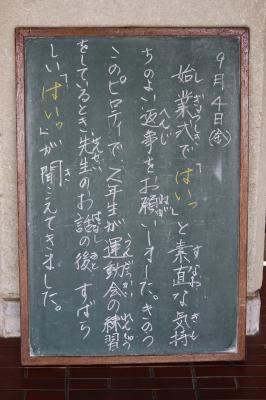 9月4日(金)
始業式で「はいっ」と素直な気持
ちのよい返事をお願いしました。きのう
このピロティで、2年生が運動会の練習
をしているとき、先生のお話の後、すばら
しい「はいっ」が聞こえてきました。